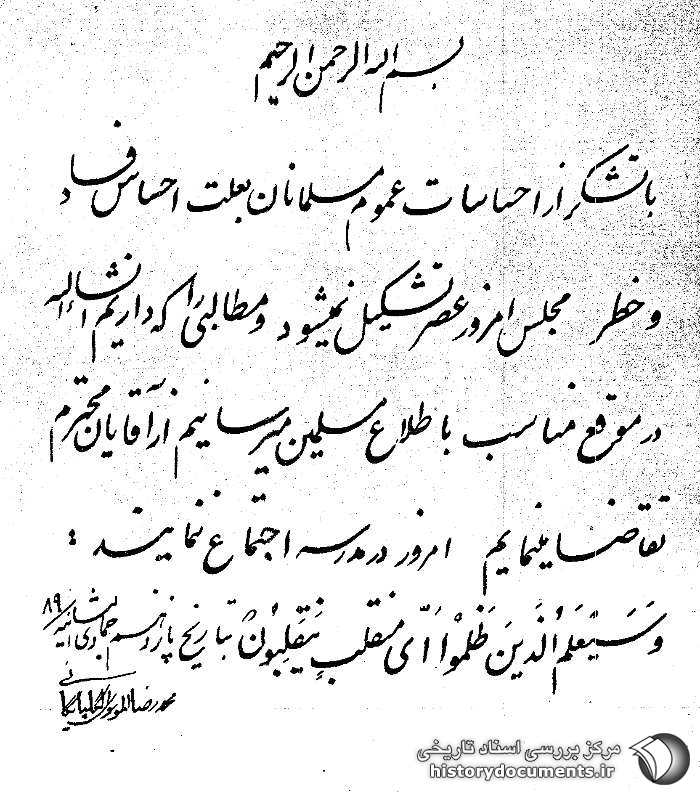 بسم الله الرحمن الرحیم
با تشکر از احساسات عموم مسلمانان بعلت احساس فساد
و خطر مجلس امروز عصر تشکیل نمیشود و مطالبی را که داریم انشاءالله
در موقع مناسب باطلاع مسلمین میرسانیم از آقایان محترم
تقاضا مینمایم امروز در مدرسه اجتماع ننمایند :
وَسَیَعْلَمُ الَّذینَ ظَلَمُوْا اَیَّ مُنقَلَبٍ یَنْقَلِبُونْ بتاریخ پانزدهم جمادی الثانیه ۸۹
محمدرضا الموسوی الگلپایگانی
مرکز بررسی اسناد تاریخی
historydocuments.ir